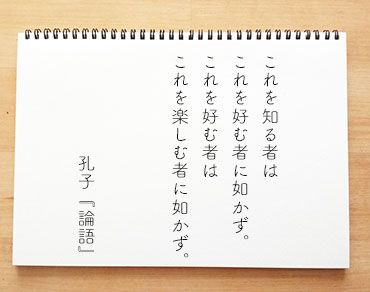 これを知る者は
これを好む者に如かず。
これを好む者は
これを楽しむ者に如かず。
孔子『論語』